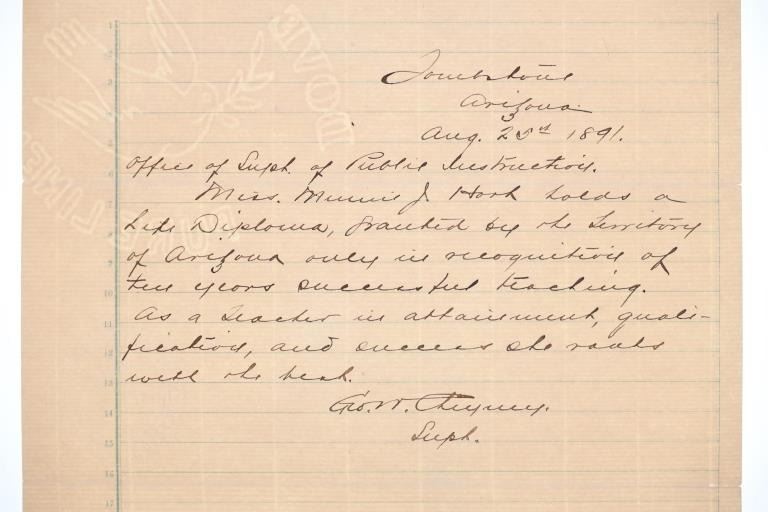 Tombstone
Arizona
Aug. 25th 1891.
Office of Supt. of Public Instruction.
Miss. Minnie J. holds a
Life Diploma, granted by the Territory
of Arizona only in recognition of
ten years successful teaching.
As a teacher in attainment, quali-
fication, and success she ranks
with the best.
Geo. W. Cheyney.
Supt.
DOVE
1
2
3
4
5
6
7
8
9
10
11
12
13
14
15
16
17